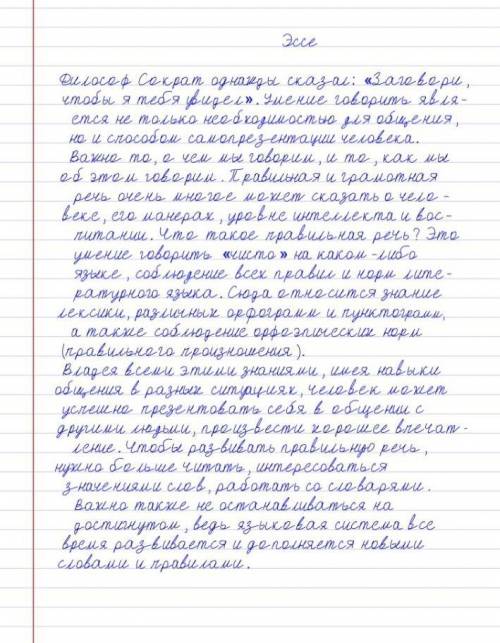 Эссе
Философ Сократ однажды сказал: «Заговори,
чтобы я тебя увидел». Умение говорить явля-
ется не только необходимостью для общения,
но и способом самопрезентации человека.
Важно то, о чем мы говорим, и то, как мы
об этом говорим. Правильная и грамотная
речь очень многое может сказать о чело-
веке, его манерах, уровне интеллекта и вос-
питании. Что такое правильная речь? Это
умение говорить «чисто» на каком-либо
языке, соблюдение всех правил и норм лите-
ратурного языка. Сюда относится знание
лексики, различных орфограмм и пунктограмм,
а также соблюдение орфоэпических норм
(правильного произношения).
Владея всеми этими знаниями, имея навыки
общения в разных ситуациях, человек может
успешно презентовать себя в общении с
другими людьми, произвести хорошее впечат-
ление. Чтобы развивать правильную речь,
нужно больше читать, интересоваться
значениями слов, работать со словарями.
Важно также не останавливаться на
достигнутом, ведь языковая система все
время развивается и дополняется новыми
словами и правилами.